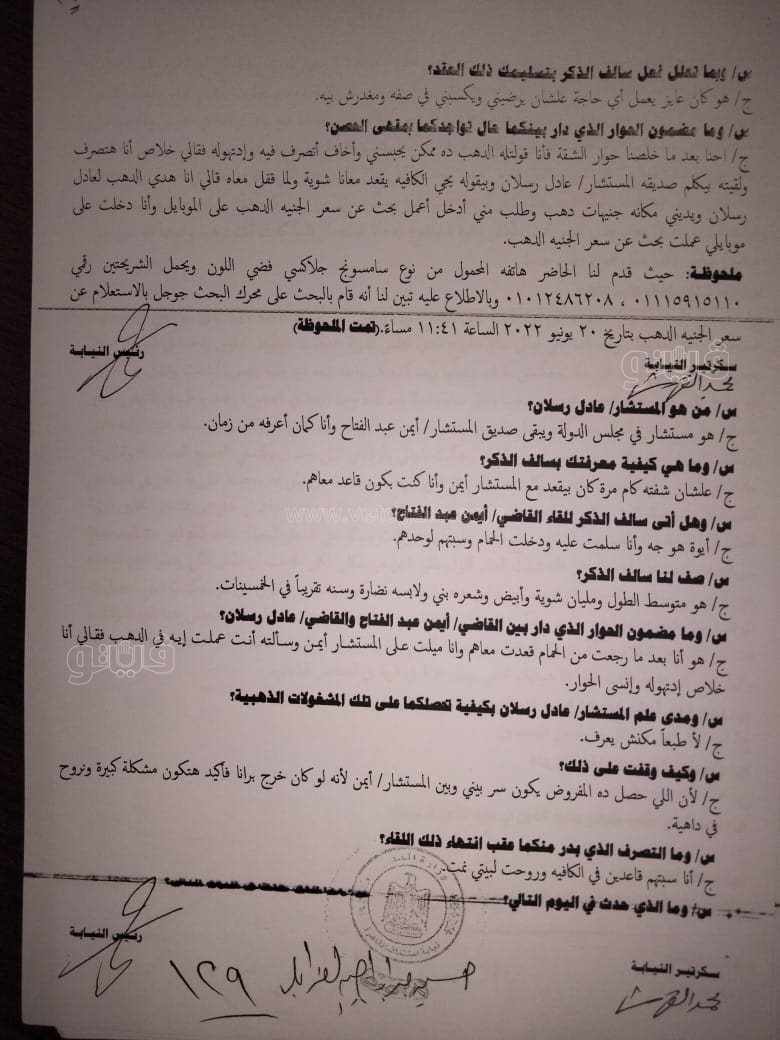 س/ وبما تعلل فعل سالف الذكر بتسليمك ذلك العقد؟
ج/ هو كان عايز يعمل أي حاجة علشان يرضيني ويكسبني في صفه ومغدرش بيه.
س/ وما مضمون الحوار الذي دار بينكما حال تواجدكما بمقهى الحصن؟
ج/ احنا بعد ما خلصنا حوار الشقة فأنا قولتله الدهب ده ممكن يحبسني وأخاف أتصرف فيه وإدتهوله فقالي خلاص أنا هتصرف
ولقيته بيكلم صديقه المستشار/ عادل رسلان وبيقوله يجي الكافيه يقعد معانا شوية ولما قفل معاه قالي انا هدي الدهب لعادل
رسلان ويديني مكانه جنيهات دهب وطلب مني أدخل أعمل بحث عن سعر الجنيه الدهب على الموبايل وأنا دخلت على
موبايلي عملت بحث عن سعر الجنيه الدهب.
ملحوظة: حيث قدم لنا الحاضر هاتفه المحمول من نوع سامسونج جلاكسي فضي اللون ويحمل الشريحتين رقمي
٠١١١٥٩١٥١١٠ ، ٠١٠١٢٤٨٦٢٠٨ وبالاطلاع عليه تبين لنا أنه قام بالبحث على محرك البحث جوجل بالاستعلام عن
سعر الجنيه الدهب بتاريخ ٢٠ يونيو ٢٠٢٢ الساعة ١١:٤١ مساءً.(تمت الملحوظة)
سكرتير النيابة
رئيس النيابة
فيتو
س/ من هو المستشار/ عادل رسلان؟
ج/ هو مستشار في مجلس الدولة ويبقى صديق المستشار/ أيمن عبد الفتاح وأنا كمان أعرفه من زمان.
س/ وما هي كيفية معرفتك بسالف الذكر؟
ج/ علشان شفته كام مرة كان بيقعد مع المستشار أيمن وأنا كنت بكون قاعد معاهم.
س/ وهل أتى سالف الذكر للقاء القاضي/ أيمن عبد الفتاح؟
ج/ أيوة هو جه وأنا سلمت عليه ودخلت الحمام وسبتهم لوحدهم.
س/ صف لنا سالف الذكر؟
ج/ هو متوسط الطول ومليان شوية وأبيض وشعره بني ولابسه نضارة وسنه تقريباً في الخمسينات.
س/ وما مضمون الحوار الذي دار بين القاضي/ أيمن عبد الفتاح والقاضي/ عادل رسلان؟
ج/ هو أنا بعد ما رجعت من الحمام قعدت معاهم وانا ميلت على المستشار أيمن وسألته أنت عملت إيه في الدهب فقالي أنا
خلاص إدتهوله وإنسى الحوار.
فيتو
س/ ومدى علم المستشار/ عادل رسلان بكيفية تحصلكما على تلك المشغولات الذهبية؟
ج/ لأ طبعاً مكنش يعرف.
س/ وكيف وقفت على ذلك؟
ج/ لأن اللي حصل ده المفروض يكون سر بيني وبين المستشار/ أيمن لأنه لو كان خرج برانا فأكيد هتكون مشكلة كبيرة ونروح
في داهية.
س/ وما التصرف الذي بدر منكما عقب انتهاء ذلك اللقاء؟
ج/ أنا سبتهم قاعدين في الكافيه وروحت لبيتي نمت.
س/ وما الذي حدث في اليوم التالي؟
سكرتير النيابة
رئيس النيابة
١٢٩